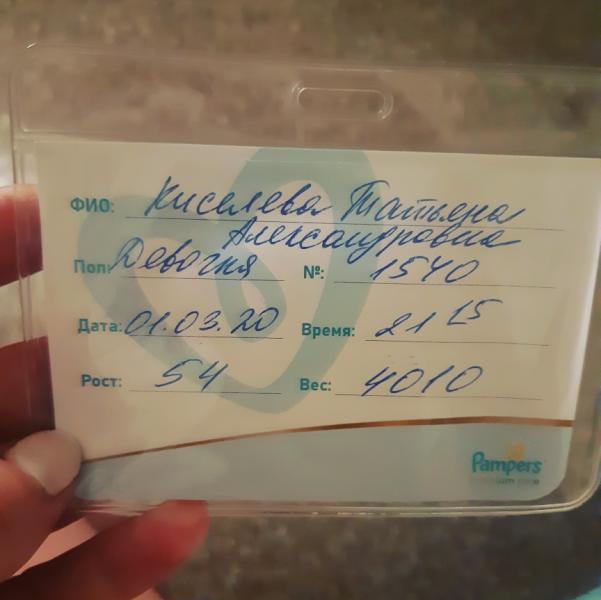 ФИО: Киселева Татьяна
Александровна
Пол: Девочка №: 1540
Дата: 01.03.20 Время: 21 15
Рост: 54 Вес: 4010
Pampers
premium care